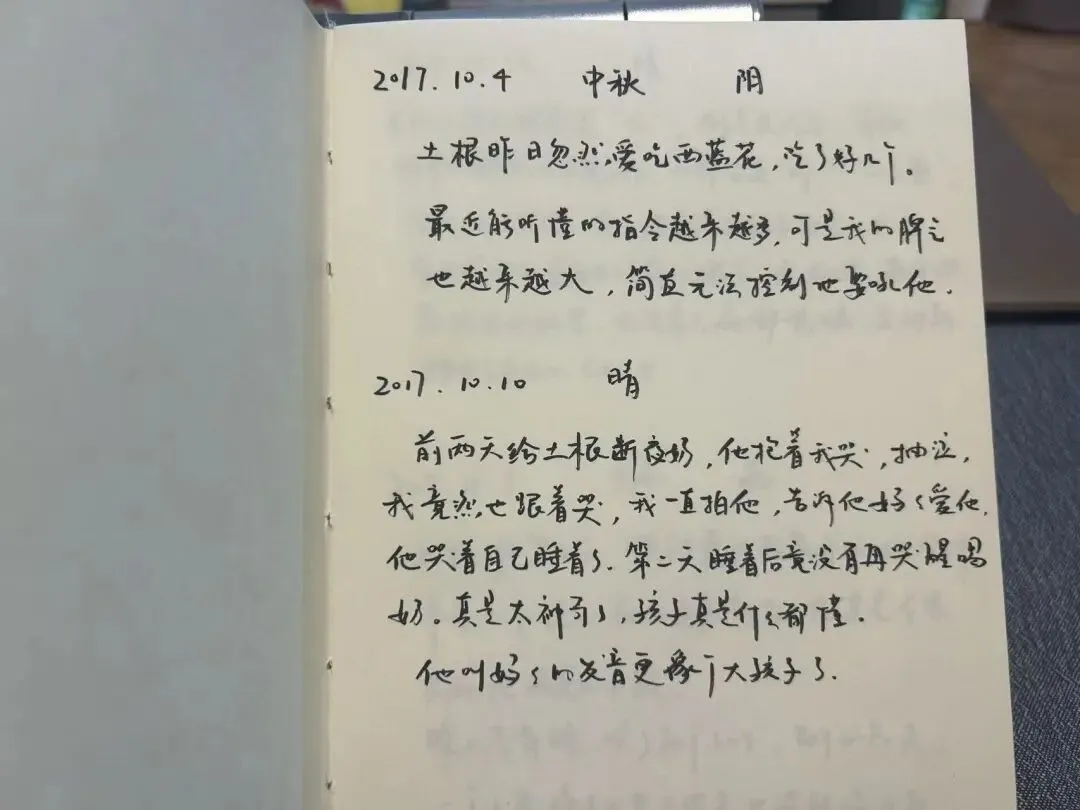 2017.10.4 中秋 阴
土根昨日忽然爱吃西蓝花,吃了好几个。
最近能听懂的指令越来越多,可是我的脾气
也越来越大,简直无法控制地要吼他.
2017.10.10 晴
前两天给土根断夜奶,他抱着我哭,抽泣,
我竟然也跟着哭,我一直拍他,告诉他妈妈爱他.
他哭着自己睡着了.第二天睡着后竟没有再哭醒喝
奶。真是太神奇了,孩子真是什么都懂.
他叫妈妈的发音更像个大孩子了.